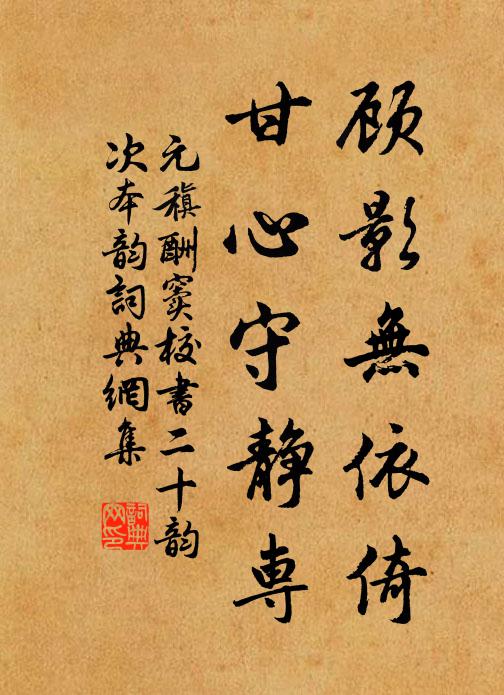 顾影無依倚
甘心守静専
元稹酬窦校書二十韵
次本韵詞典網集
詞典
网印